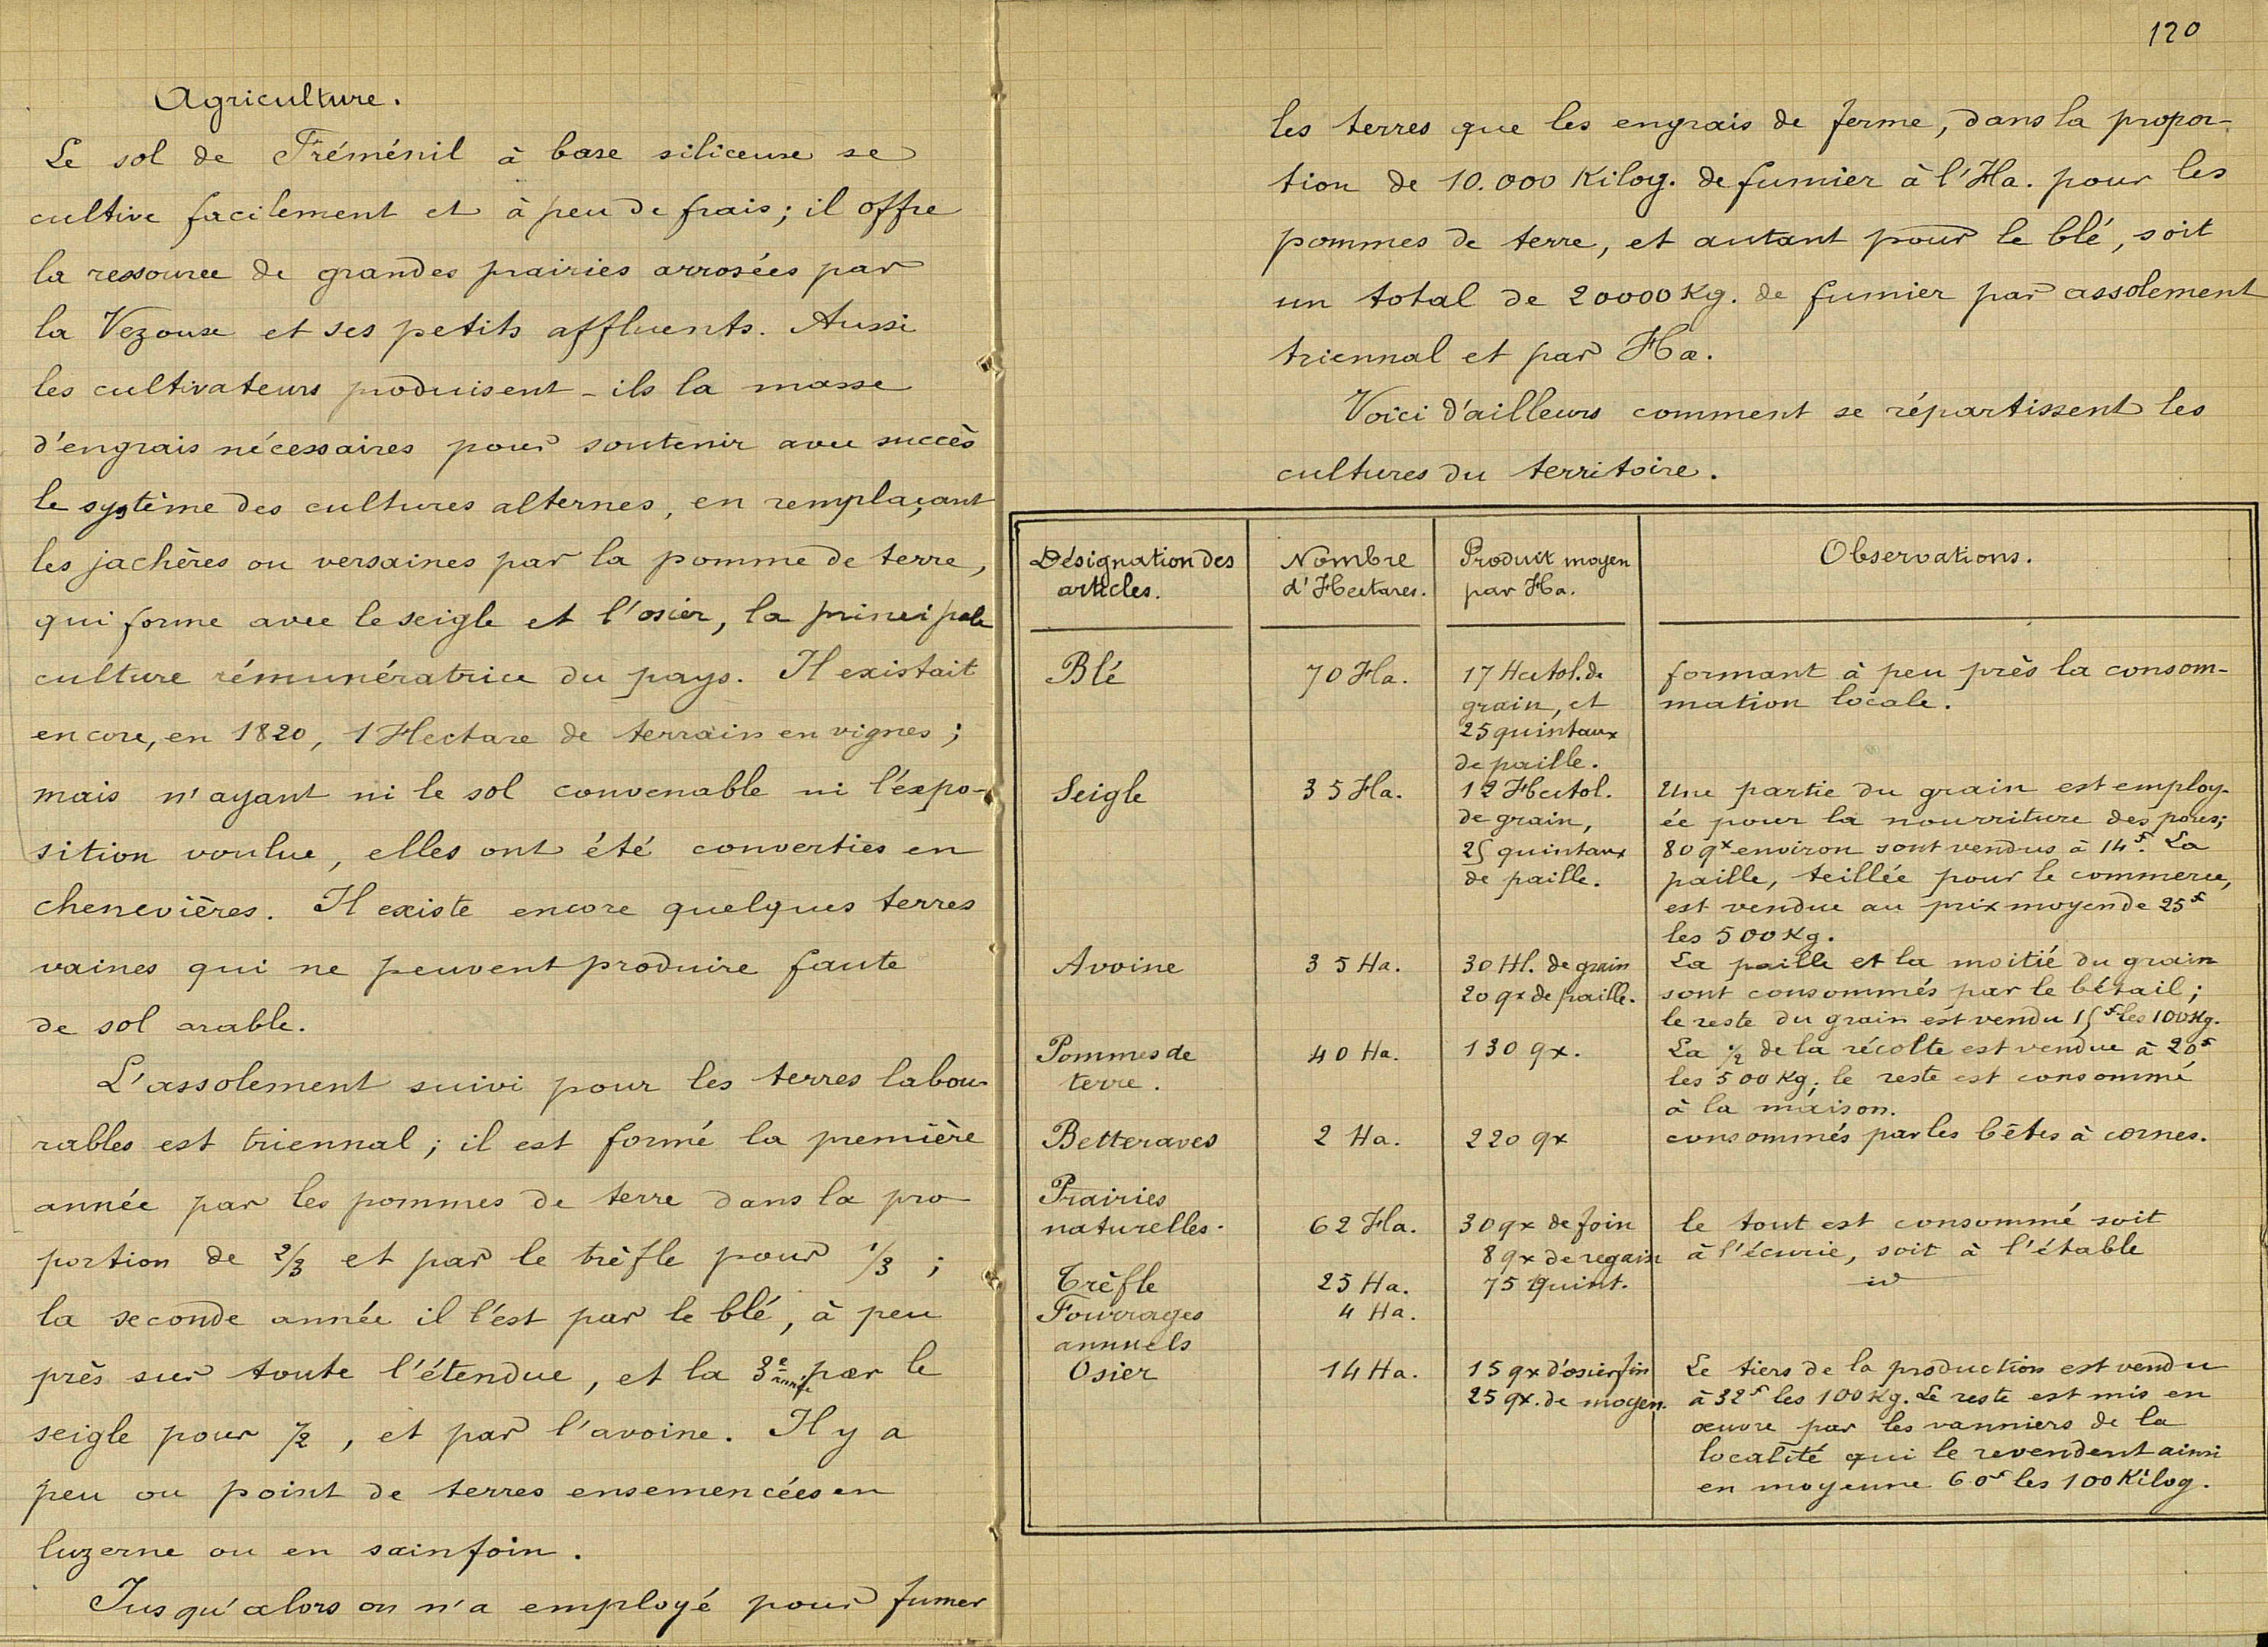 Agriculture.
Le sol de Fréménil à base siliceuse se
cultive facilement et à peu de frais ; il offre
la ressource de grandes prairies arrosées par
la Vezouse et ses petits affluents. Aussi
les cultivateurs produisent-ils la masse
d'engrais nécessaires pour soutenir avec succès
le système des cultures alternes, en remplaçant
les jachères ou versaines par la pomme de terre,
qui forme avec le seigle et l'osier, la principale
culture rémunératrice du pays. Il existait
encore, en 1820, 1 Hectare de terrain en vignes ;
mais n'ayant ni le sol convenable ni l'expo-
sition voulue, elles ont été converties en
chenevières. Il existe encore quelques terres
vaines qui ne peuvent produire faute
de sol arable.
L'assolement suivi pour les terres labou-
rables est triennal ; il est formé la première
année par les pommes de terre dans la pro
portion de 2/3 et par le trèfle pour 1/3 ;
la seconde année il l'est par le blé, à peu
près sur toute l'étendue, et la 3e année par le
seigle pour 1/2, et par l'avoine. Il y a
peu ou point de terres ensemencées en
luzerne ou en sainfoin.
Jusqu'alors on n'a employé pour fumer
120
les terres que les engrais de ferme, dans la propor-
tion de 10.000 Kilog. de fumier à l'Ha. pour les
pommes de terre, et autant pour le blé, soit
un total de 20000 Kg. de fumier par assolement
triennal et par Ha.
Voici d'ailleurs comment se répartissent les
cultures du territoire.
Désignation des articles. Nombre d'Hectares. Produit moyen par Ha. Observations.
Blé 70 Ha. 17 Hectol. de formant à peu près la consom-
grain, et mation locale.
25 quintaux
de paille.
Seigle 35 Ha. 12 Hectol. Une partie du grain est employ-
de grain, ée pour la nourriture des porcs;
25 quintaux 80 qx environ sont vendus à 14f. La
de paille. paille, teillée pour le commerce,
est vendue au prix moyen de 25f
les 500 Kg.
Avoine 35 Ha. 30 Hl. de grain La paille et la moitié du grain
20 qx de paille. sont consommés par le bétail ;
le reste du grain est vendu 15f les 100 Kg.
Pommes de 40 Ha. 130 qx. La 1/2 de la récolte est vendue à 20f
terre. les 500 Kg; le reste est consommé
à la maison.
Betteraves 2 Ha. 220 qx consommés par les bêtes à cornes.
Prairies
naturelles. 62 Ha. 30 qx de foin le tout est consommé soit
8 qx de regain à l'écurie, soit à l'étable
Trèfle 25 Ha. 75 Quint. id
Fourrages 4 Ha.
annuels
Osier 14 Ha. 15 qx d'osier fin Le tiers de la production est vendu
25 qx. de moyen. à 32f les 100 Kg. Le reste est mis en
œuvre par les vanniers de la
localité qui le revendent ainsi
en moyenne 60f les 100 Kilog.